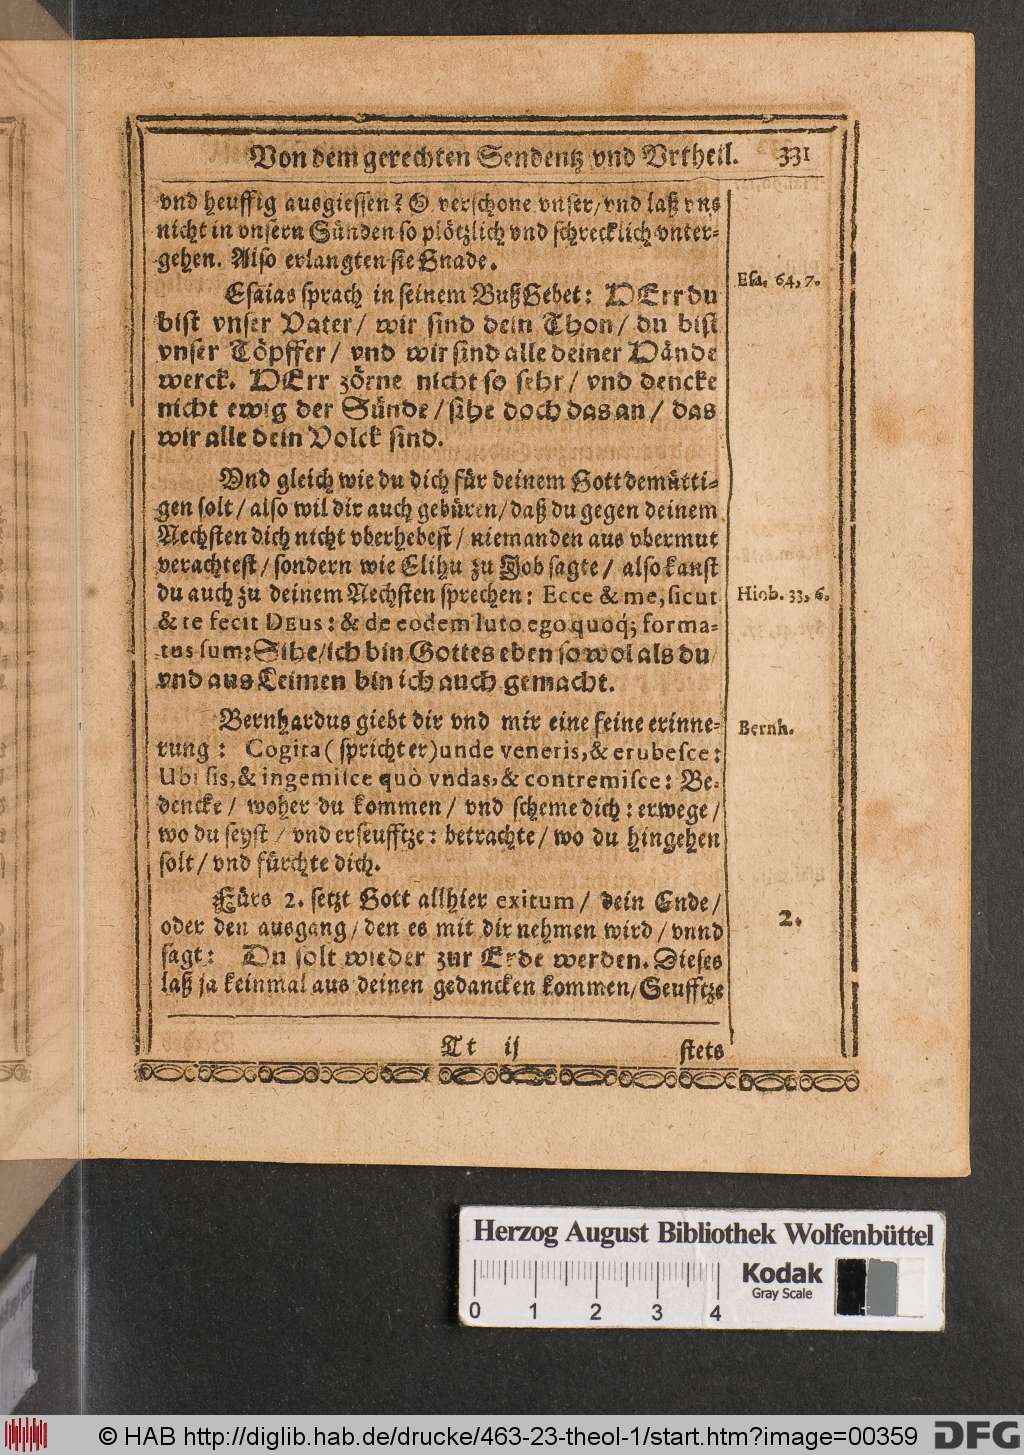 Von dem gerechten Sendentz vnd Vrtheil. 331
vnd heuffig ausgiessen? O verschone vnser/ vnd laß vns
nicht in vnsern Sünden so plötzlich vnd schrecklich vnter-
gehen. Also erlangten sie Gnade.
Esaias sprach in seinem BußGebet: HErr du
bist vnser Vater/ wir sind dein Thon/ du bist
vnser Töpffer/ vnd wir sind alle deiner Hände
werck. HErr zörne nicht so sehr/ vnd dencke
nicht ewig der Sünde/ sihe doch das an/ das
wir alle dein Volck sind.
Esa. 64, 7.
Vnd gleich wie du dich für deinem Gott demütti-
gen solt/ also wil dir auch gebüren/ daß du gegen deinem
Nechsten dich nicht vberhebest/ niemanden aus vbermut
verachtest/ sondern wie Elihu zu Job sagte/ also kanst
du auch zu deinem Nechsten sprechen: Ecce & me, sicut
& te fecit DEUS: & de eodem luto ego quoq; forma-
tus sum: Sihe/ ich bin Gottes eben so wol als du/
vnd aus Leimen bin ich auch gemacht.
Hiob. 33, 6.
Bernhardus giebt dir vnd mir eine feine erinne-
rung: Cogita (spricht er) unde veneris, & erubesce:
Ubi sis, & ingemisce quò vndas, & contremisce: Be-
dencke/ woher du kommen/ vnd scheme dich: erwege/
wo du seyst/ vnd erseufftze: betrachte/ wo du hingehen
solt/ vnd fürchte dich.
Bernh.
Fürs 2. setzt Gott allhier exitum/ dein Ende/
oder den ausgang/ den es mit dir nehmen wird/ vnnd
sagt: Du solt wieder zur Erde werden. Dieses
laß ja keinmal aus deinen gedancken kommen/ Seufftze
2.
Tt ij stets
Herzog August Bibliothek Wolfenbüttel
0 1 2 3 4
Kodak
Gray Scale
© HAB http://diglib.hab.de/drucke/463-23-theol-1/start.htm?image=00359
DFG